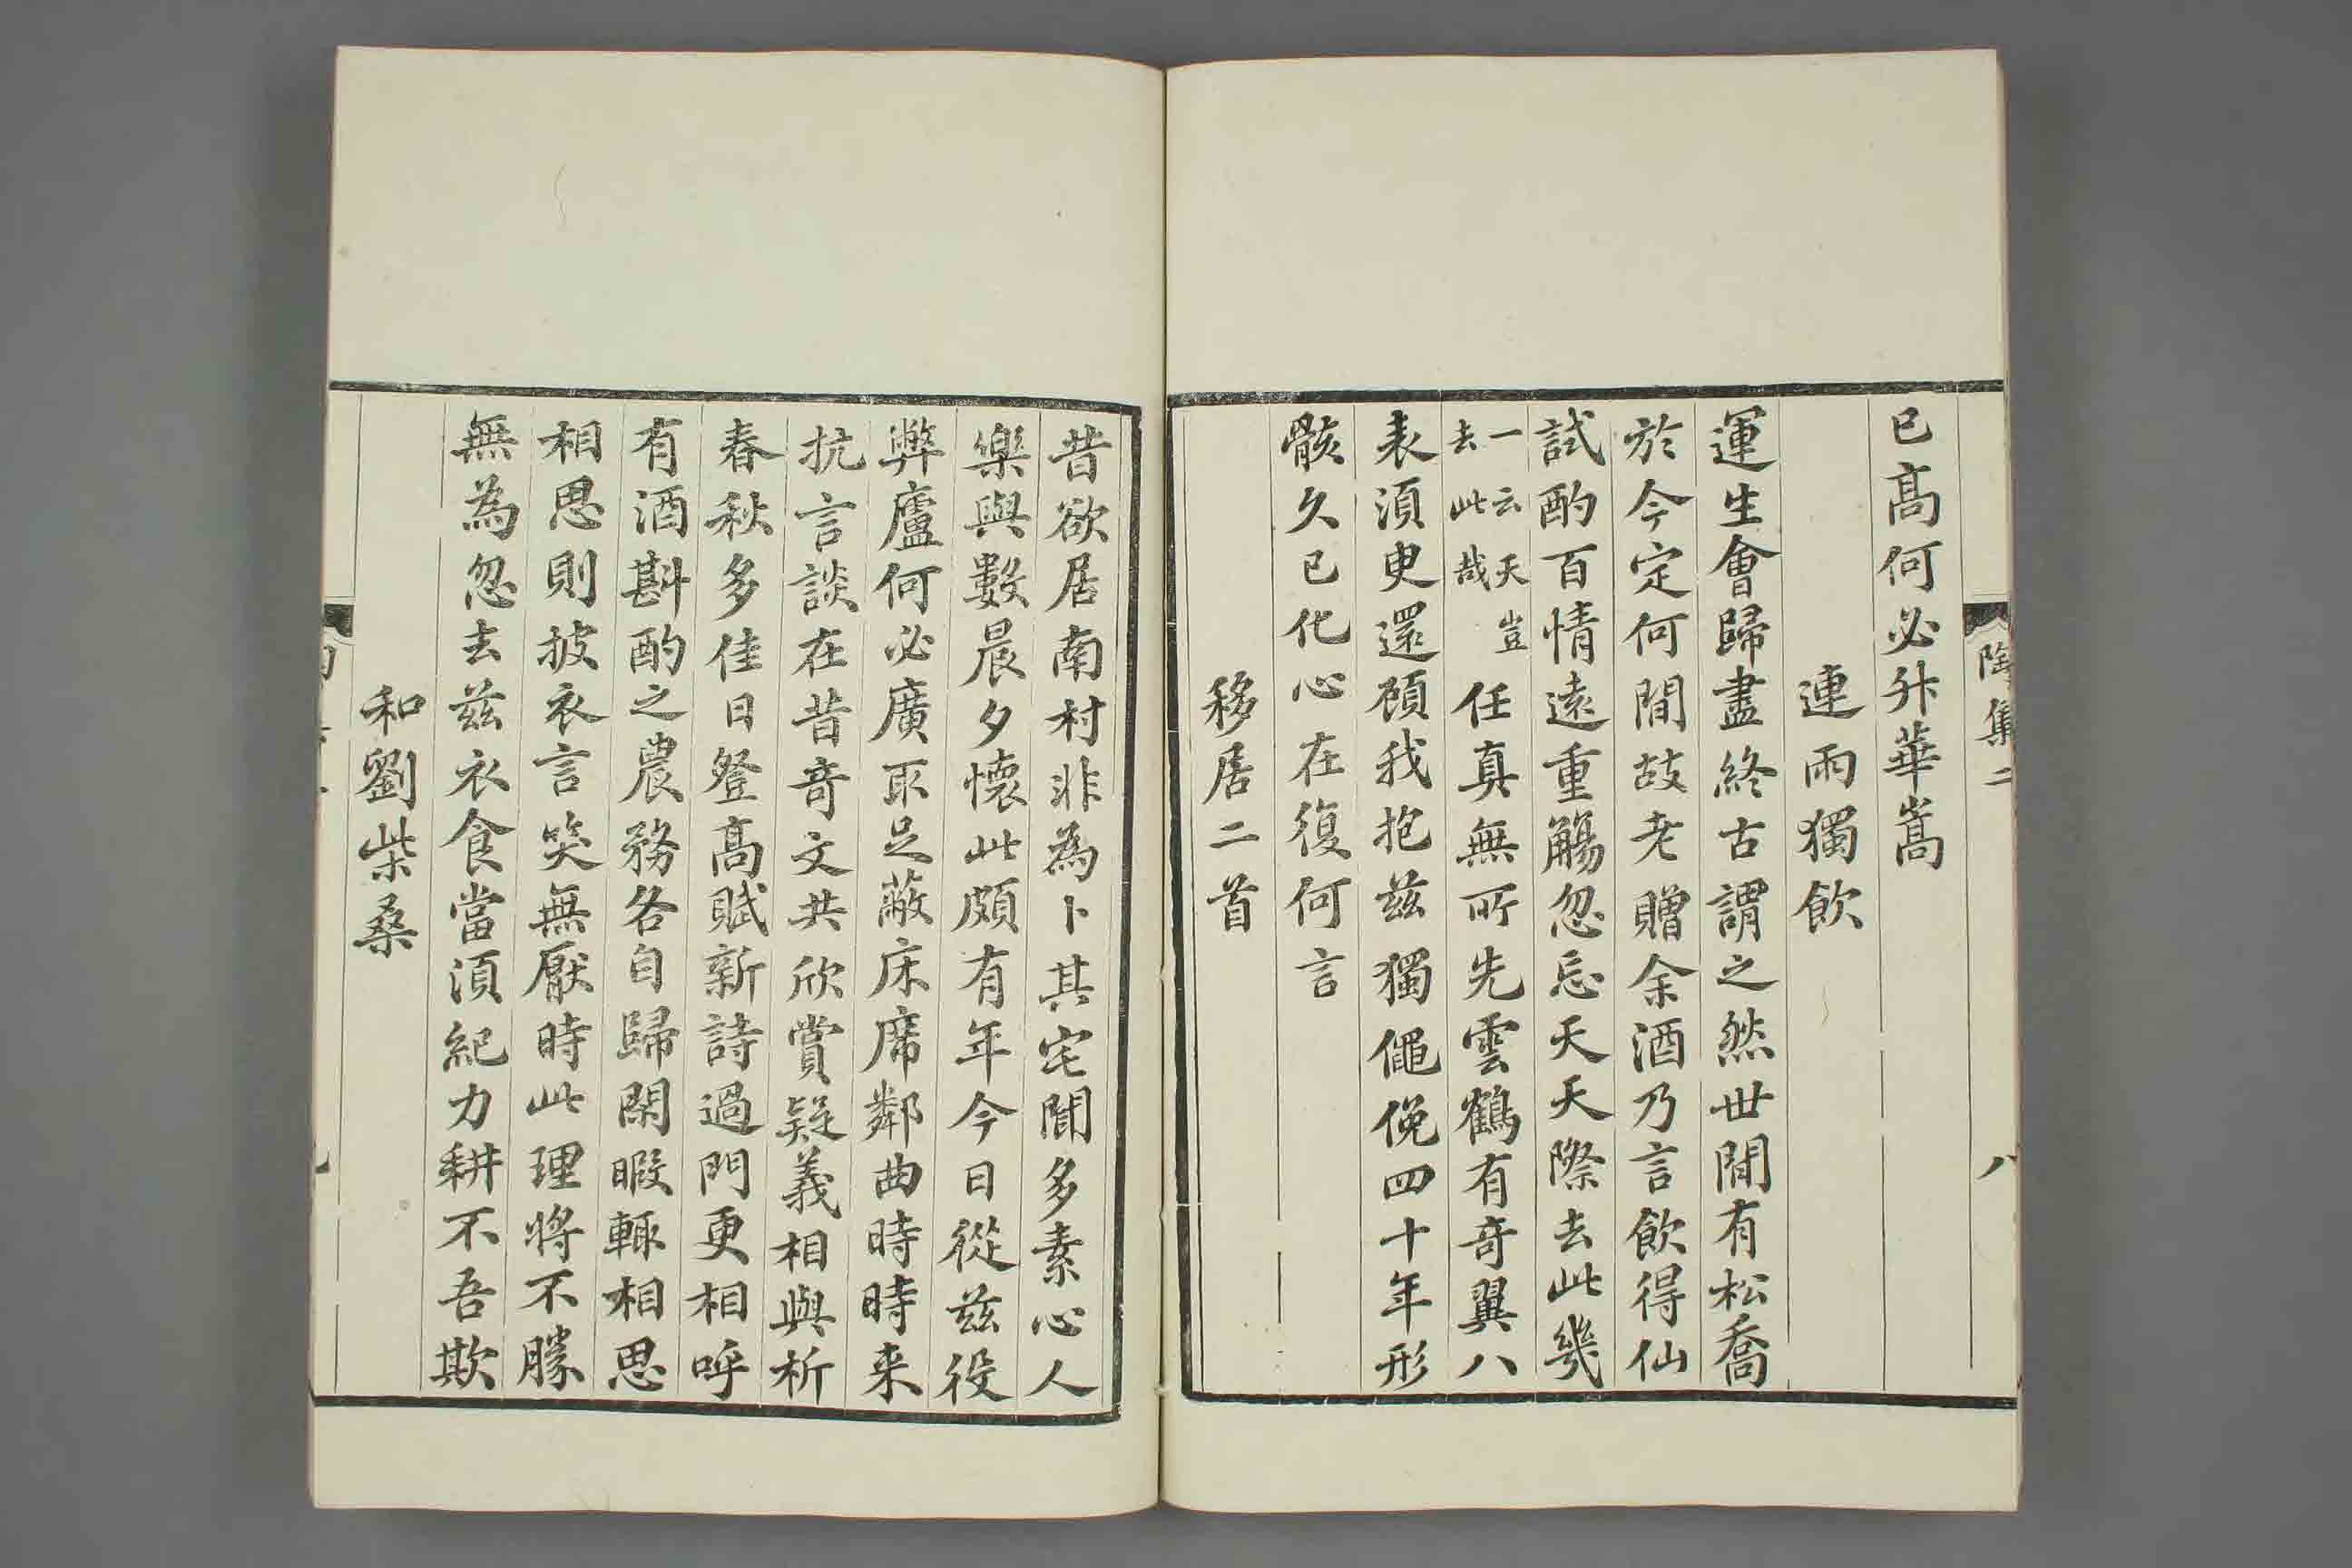 陶集二
八
已高何必升華嵩
連雨獨飲
運生會歸盡終古謂之然世間有松喬
於今定何間故老贈余酒乃言飲得仙
試酌百情遠重觴忽忘天天際去此幾
一云天豈
去此哉
任真無所先雲鶴有奇翼八
表須更還顧我抱兹獨僶俛四十年形
骸久已化心在復何言
移居二首
昔欲居南村非為卜其宅聞多素心人
樂與數晨夕懷此頗有年今日從兹役
弊廬何必廣取足蔽床席鄰曲時時来
抗言談在昔奇文共欣賞疑義相與析
春秋多佳日登高賦新詩過門更相呼
有酒斟酌之農務各自歸閑暇輒相思
相思則披衣言笑無厭時此理將不勝
無為忽去兹衣食當湏紀力耕不吾欺
和劉柴桑